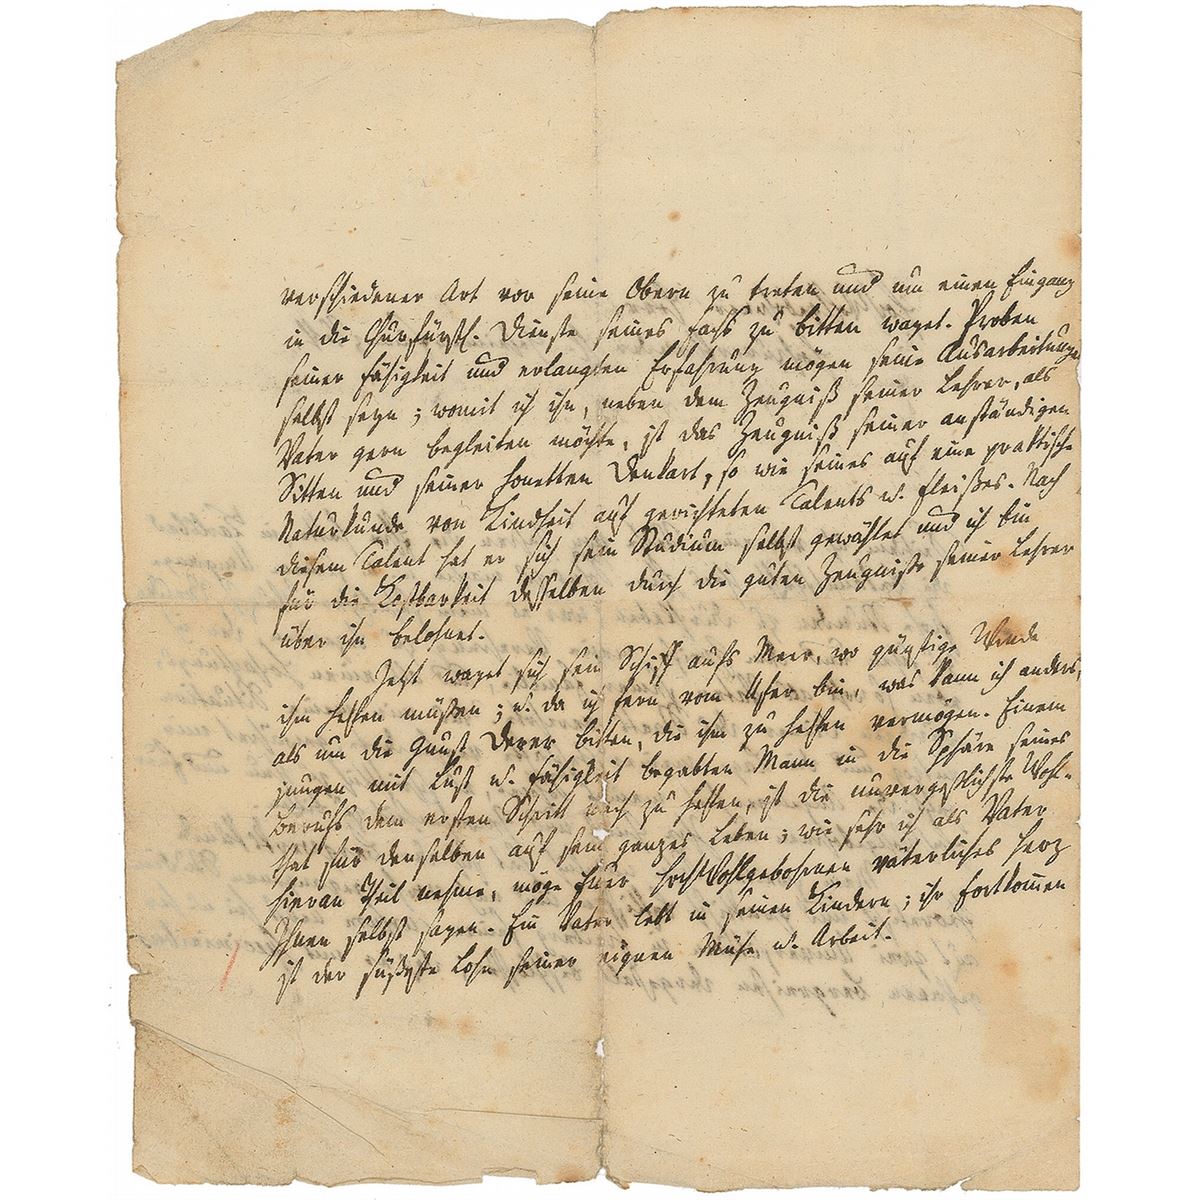 verschiedener Art vor seine Obern zu treten und um einen Eingang
in die Churfürstl. Dienste seines Fachs zu bitten waget. Proben
seiner Fähigkeit und erlangten Erfahrung mögen seine Ausarbeitungen
selbst seyn; womit ich ihn, neben dem Zeugniß seiner Lehrer, als
Vater gern begleiten möchte, ist das Zeugniß seiner anständigen
Sitten und seiner honetten Denkart, so wie seines auf eine praktische
Naturkunde von Kindheit auf gerichteten Talents u. Fleißes. Nach
diesem Talent hat er sich sein Studium selbst gewählet und ich bin
für die Kostbarkeit desselben durch die guten Zeugniße seiner Lehrer
über ihn belohnet.
Jetzt waget sich sein Schiff aufs Meer, wo günstige Winde
ihm helfen müßen; u. da ich fern vom Ufer bin, was kann ich anders,
als um die Gunst Derer bitten, die ihm zu helfen vermögen. Einem
jungen mit Lust u. Fähigkeit begabten Mann in die Sphäre seines
Berufs dem ersten Schritt nach zu helfen, ist die unvergeßlichste Wohl-
that für denselben auf sein ganzes Leben; wie sehr ich als Vater
hieran Theil nehme, möge Euer HochWohlgebohrnen väterliches Herz
Ihnen selbst sagen. Ein Vater lebt in seinen Kindern; ihr Fortkommen
ist der süßeste Lohn seiner eignen Mühe u. Arbeit.